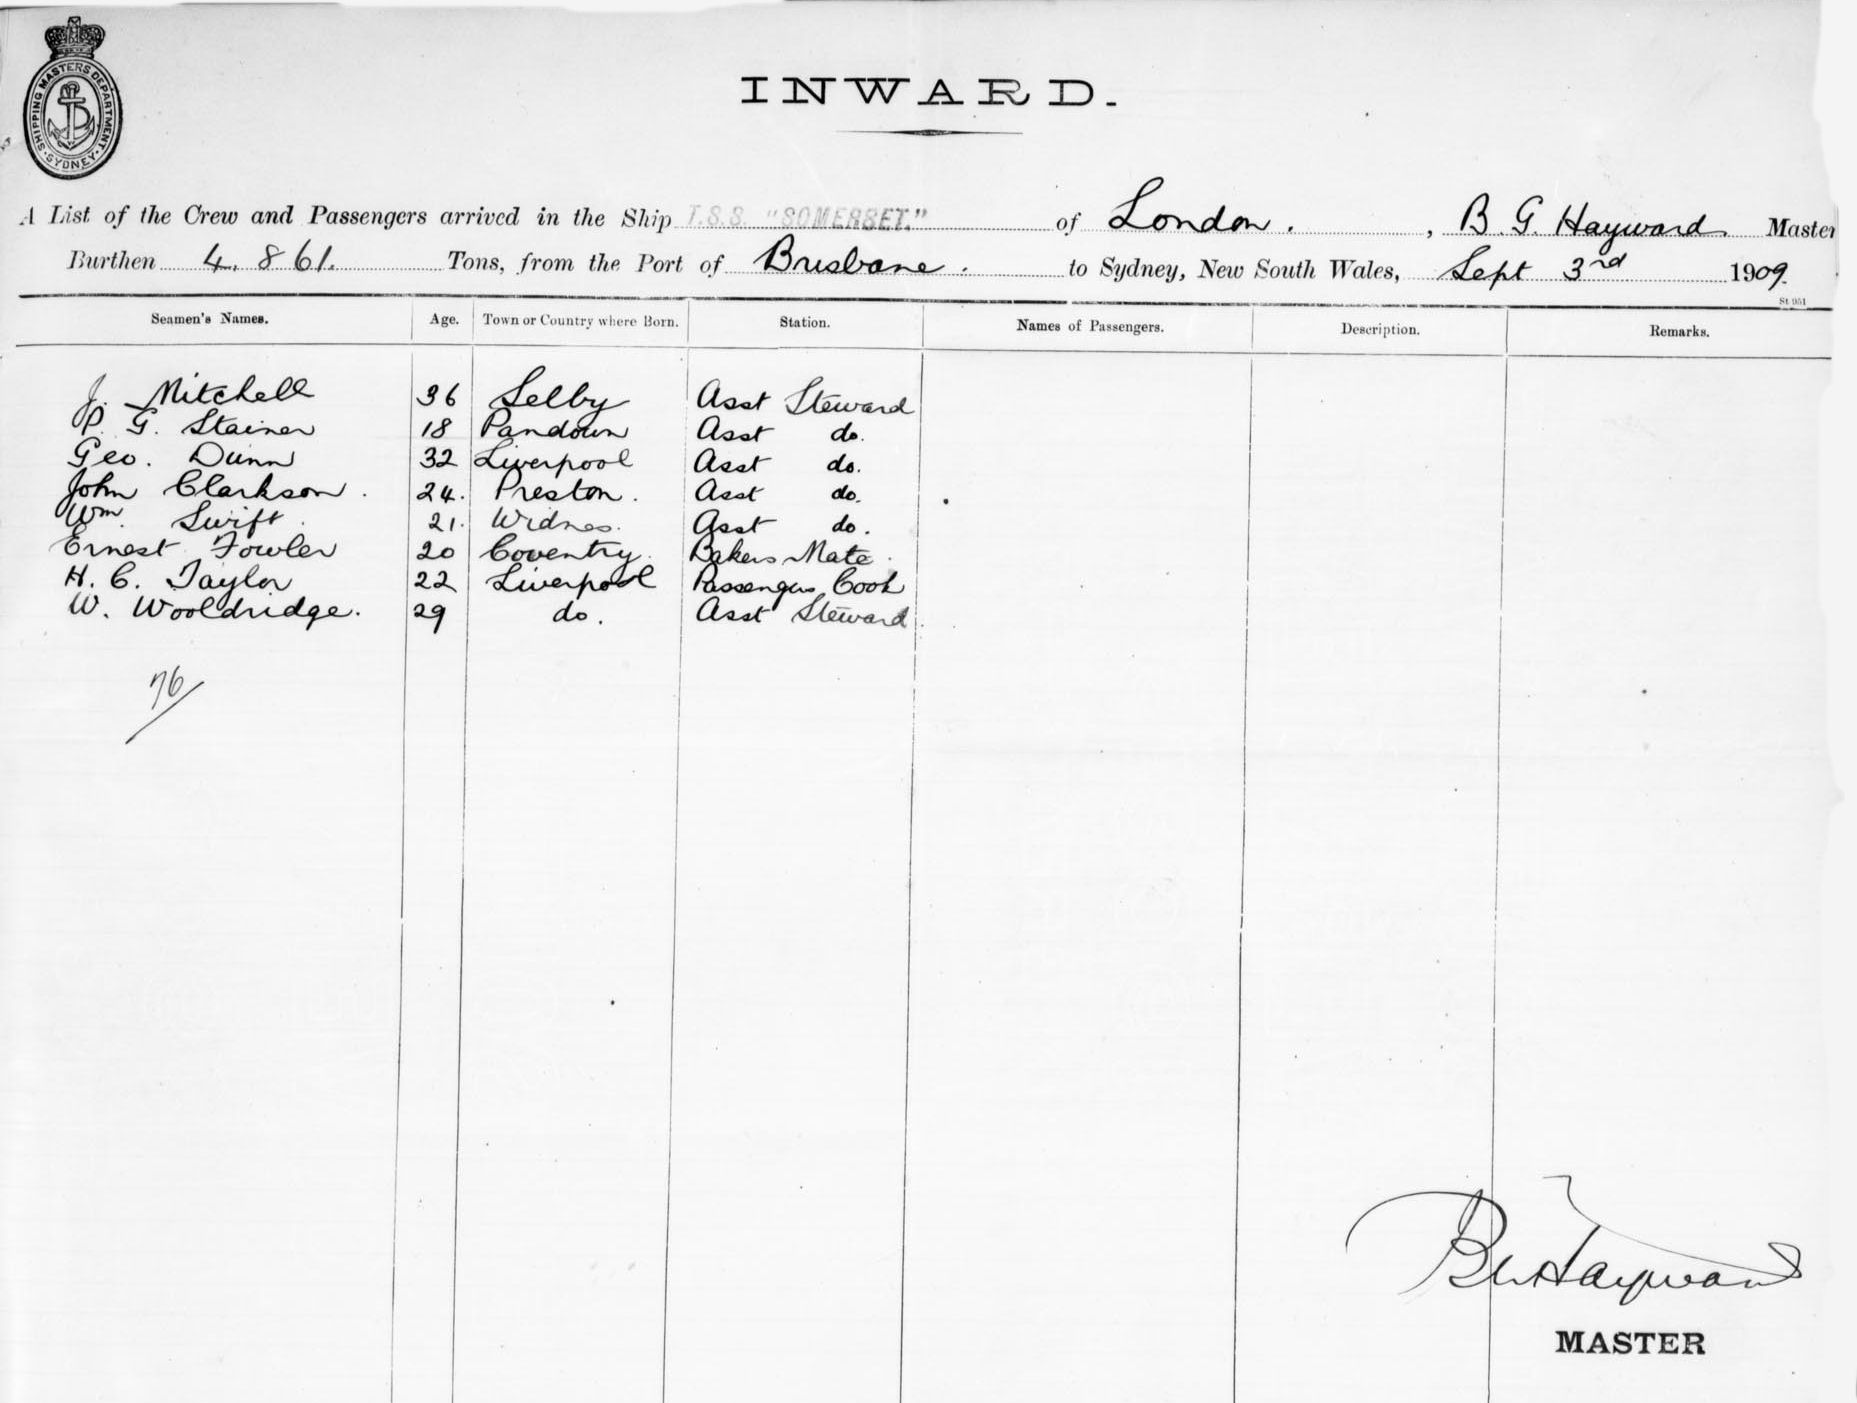 SHIPPING MASTERS DEPARTMENT · SYDNEY ·
INWARD.
A List of the Crew and Passengers arrived in the Ship T.S.S. "SOMERSET." of London. , B. G. Hayward Master
Burthen 4.861. Tons, from the Port of Brisbane. to Sydney, New South Wales, Sept 3rd 1909.
St 951
Seamen's Names. Age. Town or Country where Born. Station. Names of Passengers. Description. Remarks.
J. Mitchell 36 Selby Asst Steward
P. G. Stainer 18 Pandown Asst do.
Geo. Dunn 32 Liverpool Asst do.
John Clarkson. 24. Preston. Asst do.
Wm. Swift. 21. Widnes. Asst do.
Ernest Fowler 20 Coventry. Bakers Mate.
H. C. Taylor 22 Liverpool Passengers Cook
W. Wooldridge. 29 do. Asst Steward.
76
Hayward
MASTER